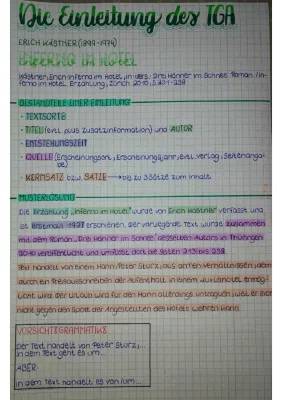 Die Einleitung des TGA
ERICH KÄSTNER (1899-1974)
INFERNO IM HOTEL
Kästner, Erich: Inferno im Hotel, in: vers.: Drei Männer im Schnee. Roman / In-
ferno im Hotel. Erzählung, Zürich 2010, S.
BESTANDTEILE EINER EINLEITUNG
- TEXTSORTE
- TITEL (evtl. plus Zusatzinformation) und AUTOR
- ENTSTEHUNGSZEIT
- QUELLE (Erscheinungsort, Erscheinungsjahr, evtl. Verlag, Seitenanga-
be)
- KERNSATZ bzw. SÄTZE → bis zu 3 Sätze zum Inhalt
MUSTERLÖSUNG
Die Erzählung „Inferno im Hotel" wurde von Erich Kästner verfasst und
ist erstmals 1927 erschienen. Der vorliegende Text wurde zusammen
mit dem Roman „Drei Männer im Schnee" desselben Autors in
2010 veröffentlicht und umfasst dort die Seiten 213 bis
Text handelt von einem Mann, Peter Sturz, aus armen Verhältnissen, dem
durch ein Preisausschreiben der Aufenthalt in einem Luxushotel ermög-
licht wird. Der Urlaub wird für den Mann allerdings unerträglich, weil er sich
nicht gegen den Spott der Angestellten des Hotels wehren kann.
VORSICHT: GRAMMATIK
Der Text handelt von Peter Sturz,...
In dem Text geht es um...
ABER:
In dem Text handelt es von/um...